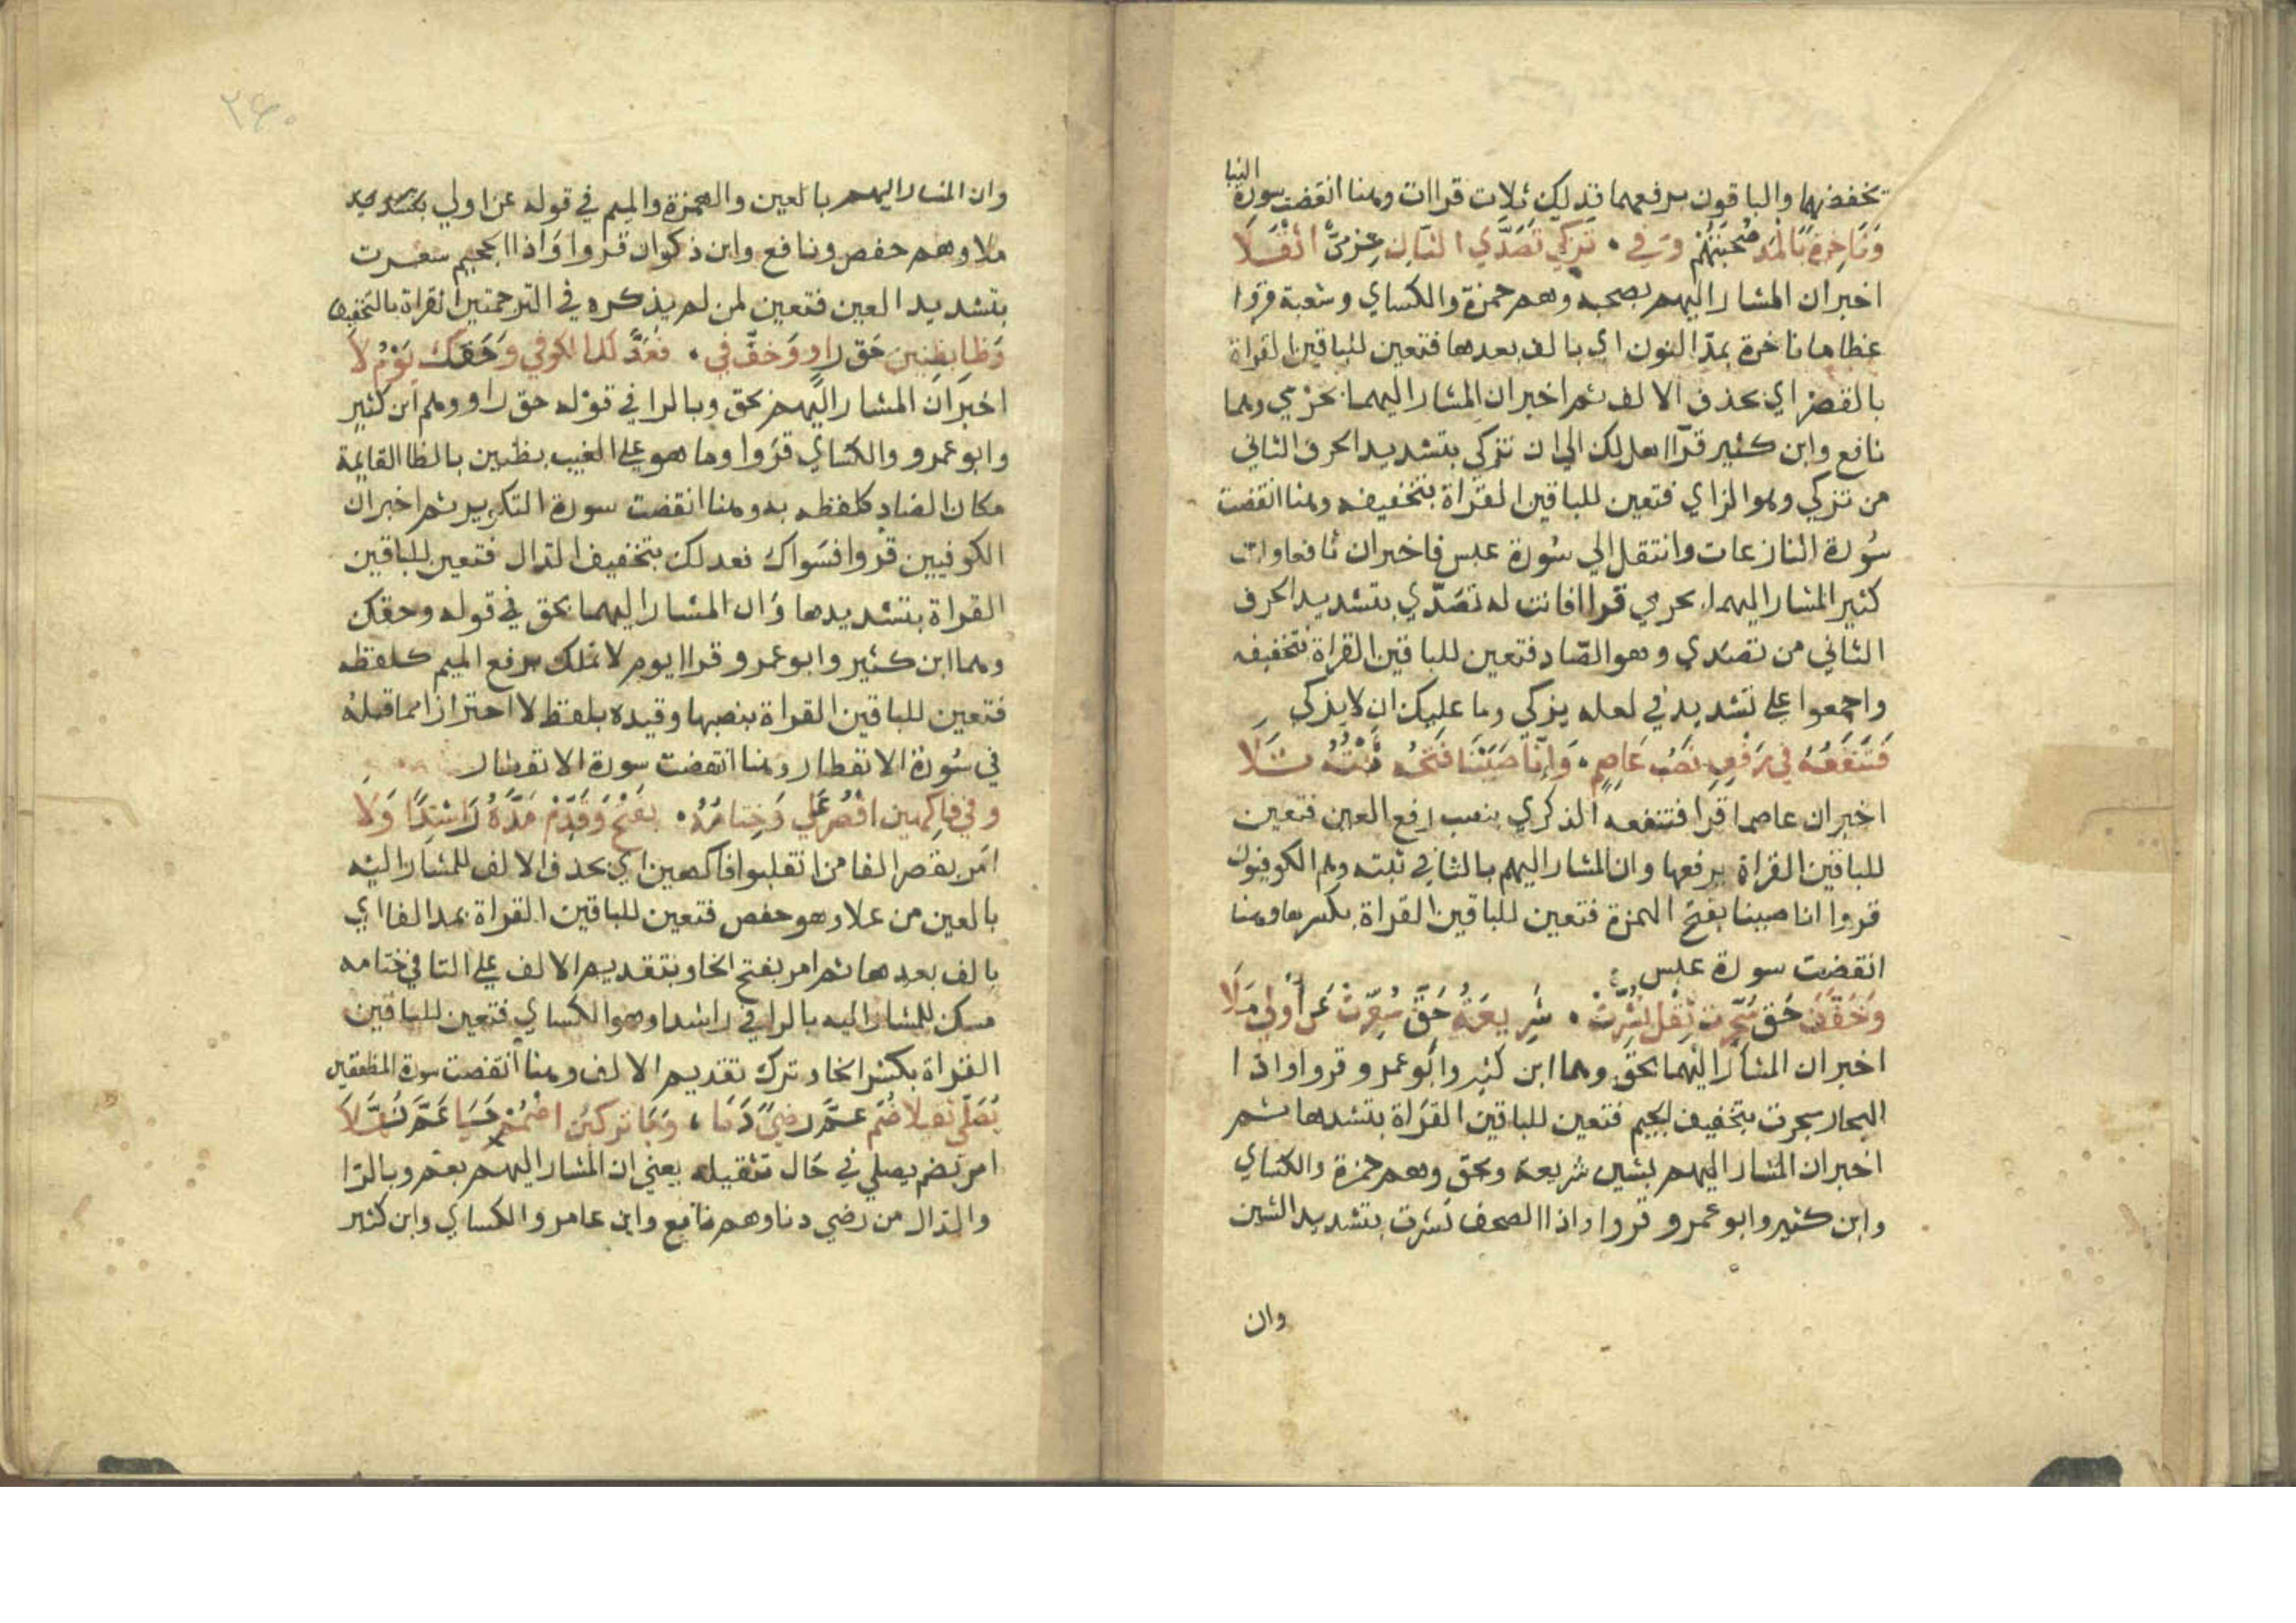 النبا
بخفضهما والباقون برفعهما فذلك ثلاث قراات وهنا انقضت سورة
وَنَاخِرَةً بالمَد صُحبَتُهُم وَفي ۰ تَزَكّي تَصَدَّي الثانِ حِرمِيٌّ اثْقَلَا
اخبر ان المشار اليهم بصحبه وهم حمزة والكساي وشعبة قروا
عظاما ناخرة بمدّ النون اي بالف بعدها فتعين للباقين القراة
بالقصر اي بحذف الالف ثم اخبر ان المشار اليهما بحرمي وهما
نافع وابن كثير قرآ هل لك الي ان تزكي بتشديد الحرف الثاني
من تزكي وهو الزاي فتعين للباقين القراة بتخفيفه وهنا انقضت
سُورة النازعات وانتقل الي سُورة عبس فاخبر ان نافعا وابن
كثير المشار اليهما بحرمي قراا فانت له تصَدّي بتشديد الحرف
الثاني من تصَدي وهو الصّاد فتعين للباقين القراة بتخفيفه
واجمعوا علي تشديد في لعله يزكي وما عليك ان لا يزكي
فَتَنفَعُهُ في رَفْعِهِ نَصْبُ عَاصِمٍ ۰ وَانّا صَبَبْنَا فَتحُهُ ثَبْتُهُ تَلَا
اخبر ان عاصما قرا فتنفعه الذكري بنصب رفع العين فتعين
للباقين القراة برفعها وان المشار اليهم بالثا في ثبته وهم الكوفيون
قروا انا صببنا بفتح الهمزة فتعين للباقين القراة بكسرها وهنا
انقضت سورة عبس
وَخَفَّفَ حَق سُجِّرَت ثِقْلُ نُشِّرَتْ ۰ شَرِيعَةُ حَقّ سُعِّرَتْ عَن اُولي مَلَا
اخبر ان المشار اليهما بحق وهما ابن كثير وابو عمرو قروا واذا
البحار سجرت بتخفيف الجيم فتعين للباقين القراة بتشدها ثم
اخبر ان المشار اليهم بشين شريعة وبحق وهم حمزة والكساي
وابن كثير وابو عمرو قروا واذا الصحف نشرت بتشديد الشين
وان
۲۶۰
وان المشار اليهم بالعين والهمزة والميم في قوله عن اولي بتشديد
ملا وهم حفص ونافع وابن ذكوان قروا واذا الجحيم سعرت
بتشديد العين فتعين لمن لم يذكره في الترجمتين القراة بالتخفيف
وَظَا بِظَنِين حَق رَاو وَخفَّ في ۰ فَعَدَّلَكَ الكوفي وَحَقكَ يَوْمُ لَا
اخبر ان المشار اليهم بحق وبالرا في قوله حق راو وهم ابن كثير
وابو عمرو والكساي قرَوا وما هو علي الغيب بظنين بالظا القايمة
مكان الضاد كلفظه به وهنا انقضت سورة التكوير ثم اخبر ان
الكوفيين قروا فسَواك فعدلك بتخفيف الدال فتعين للباقين
القراة بتشديدها وَان المشار اليهما بحق في قوله وحقك
وهما ابن كثير وابو عمرو قراا يوم لا تملك برفع الميم كلفظه
فتعين للباقين القراة بنصبها وقيده بلفظ لا احترازا مما قبله
في سُورة الانفطار وهنا انقضت سورة الانفطار
وفي فَاكِهين اقْصُر عُلي وَختامُهُ ۰ بفَتْح وَقَدِّمْ مَدَّهُ رَاشِدًا وَلَا
امَر بقصر الفا من انقلبوا فاكهين اي بحذف الالف للمشار اليه
بالعين من علا وهو حفص فتعين للباقين القراة بمد الفا اي
بالف بعدها ثم امر بفتح الخا وبتقديم الالف علي التا في ختامه
مسك للمشار اليه بالرا في راشدا وهو الكساي فتعين للباقين
القراة بكسر الخا وترك تقديم الالف وهنا انقضت سورة المطففين
يُصَلّي ثقيلا ضُم عَمّ رضيً دَنا ۰ وَبَا تركبَن اضْمُمْ حَيَا عَمَّ نُهَّلَا
امر بضم يصلي في حَال تثقيله يعني ان المشار اليهم بعم وبالرا
والدال من رضي دنا وهم نافع وابن عامر والكساي وابن كثير